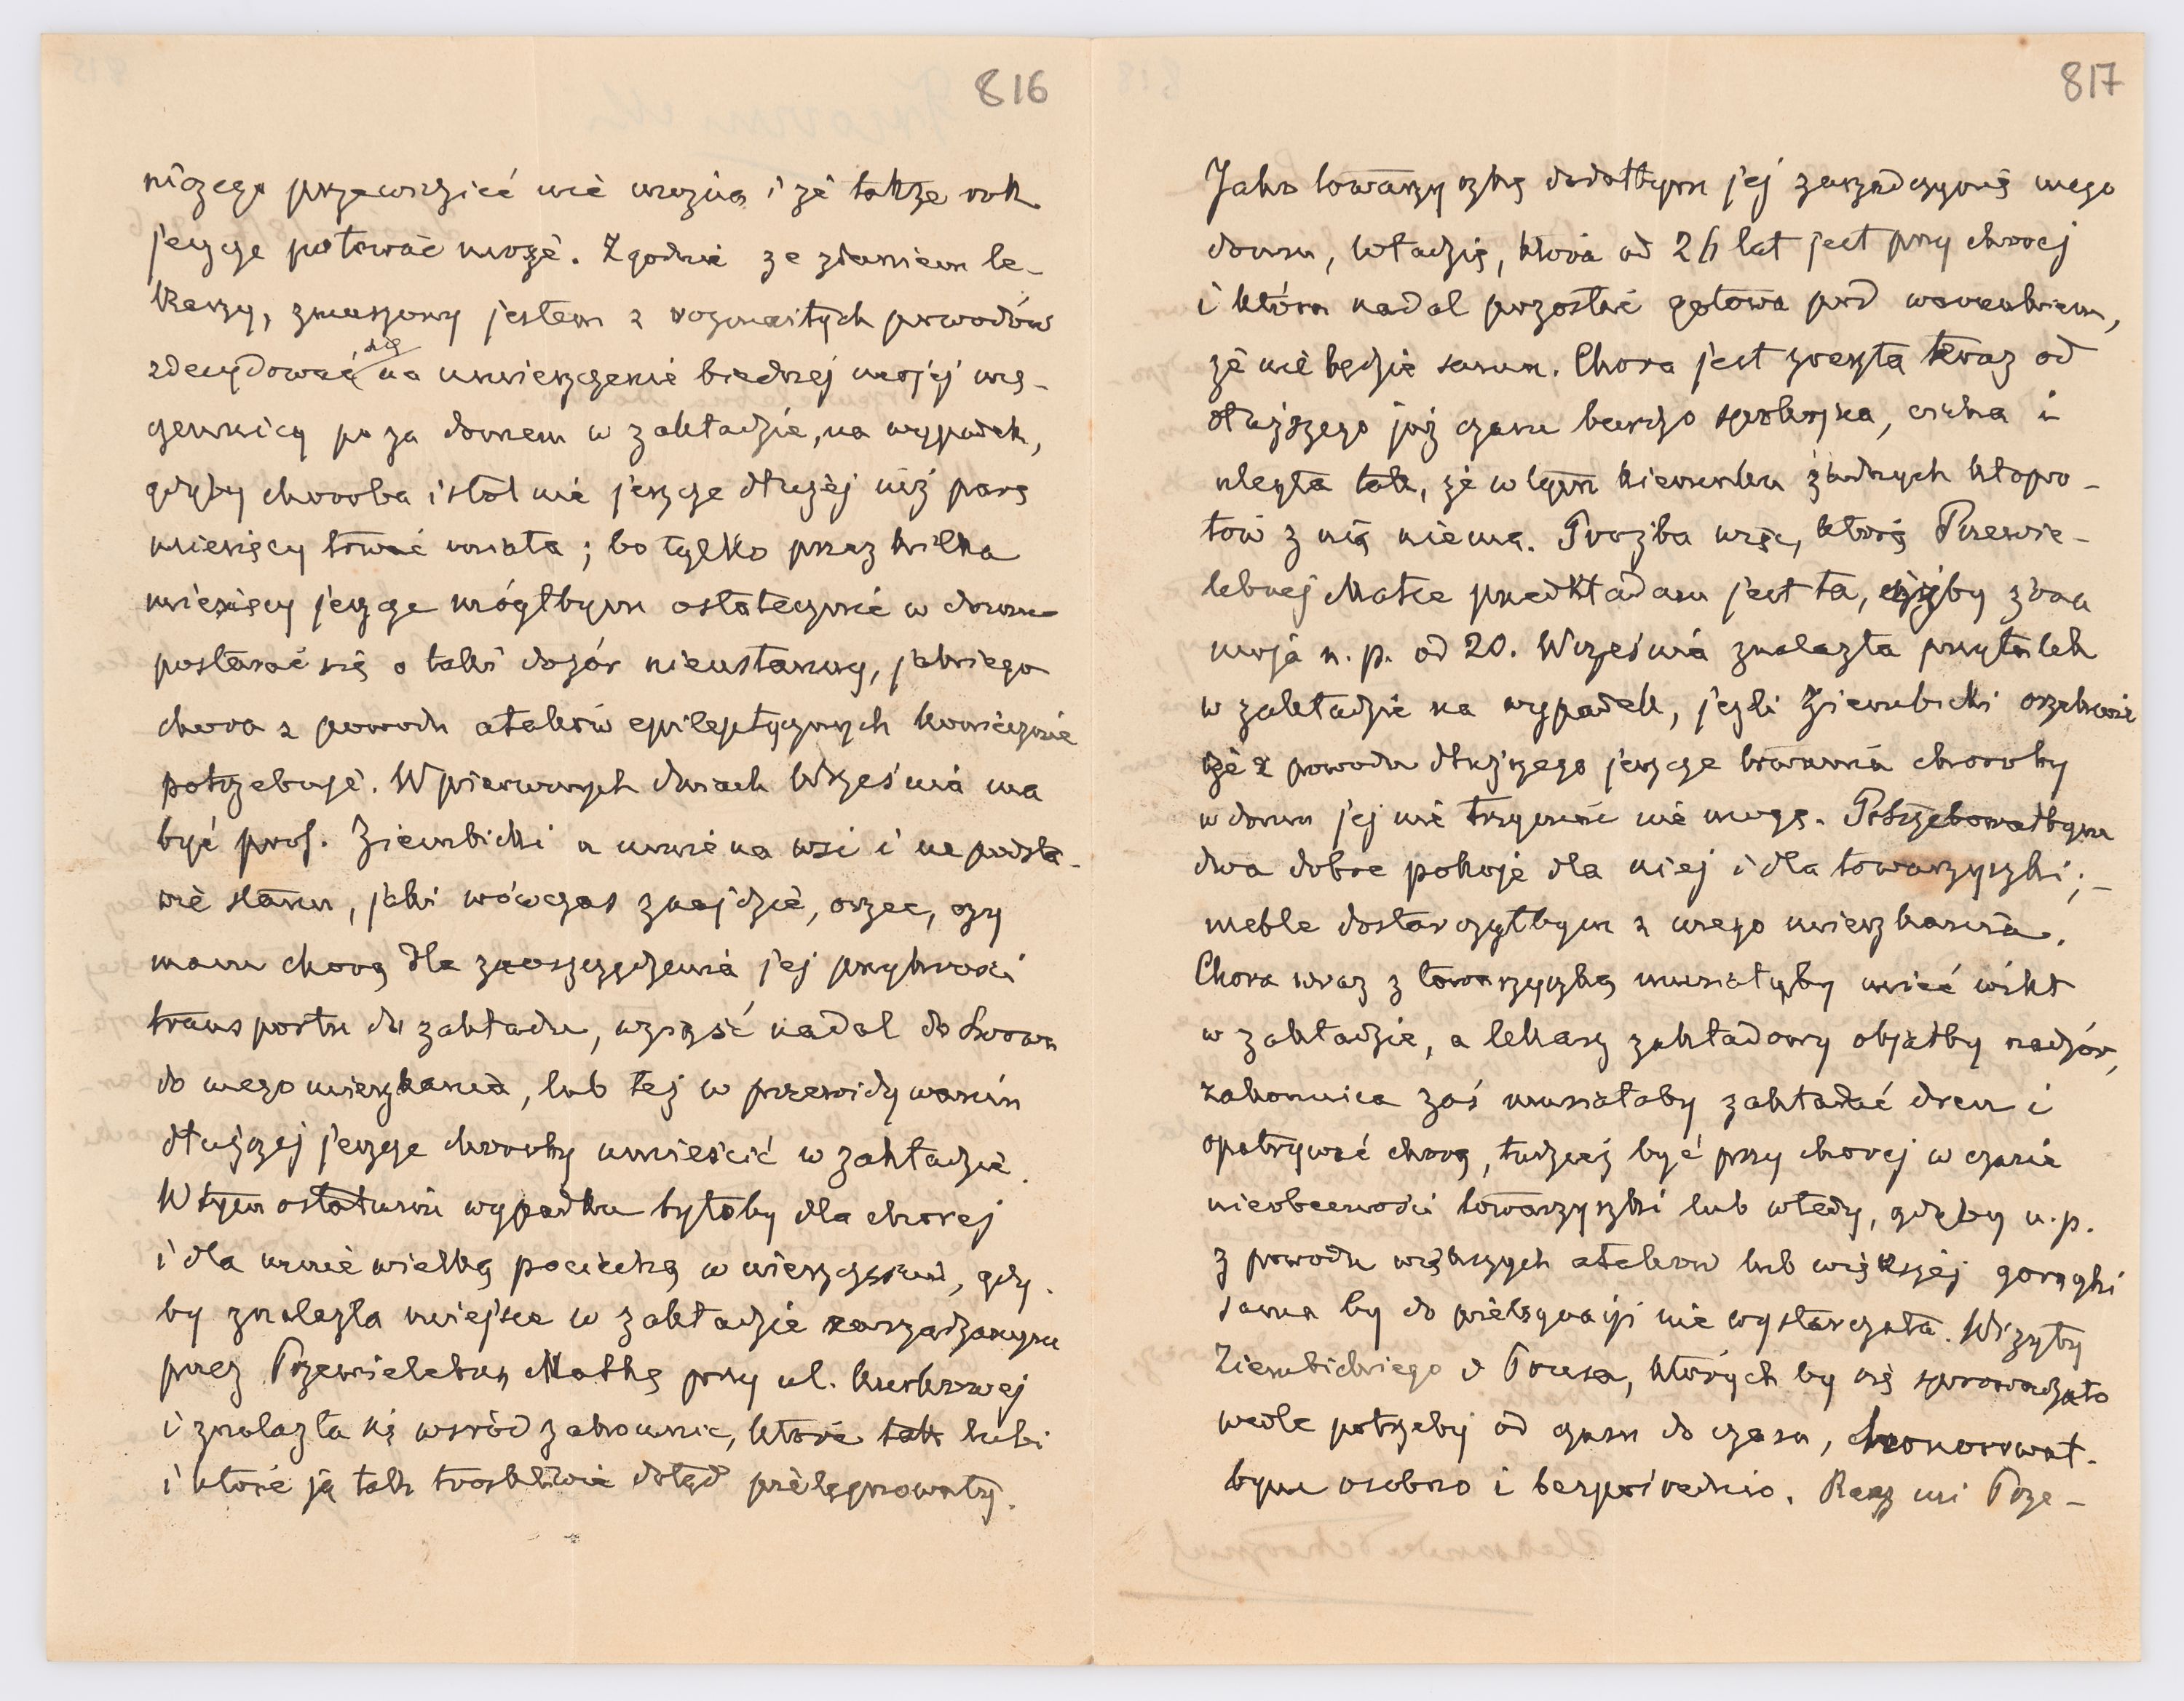 816
niczego przewidzieć nie można i że także rok
jeszcze potrwać może. Zgodnie ze zdaniem le-
karzy, zmuszony jestem z rozmaitych powodów
zdecydować się na umieszczenie biednej mojej mę-
czennicy poza domem w zakładzie, na wypadek,
gdyby choroba istotnie jeszcze dłużej niż parę
miesięcy trwać miała; bo tylko przez kilka
miesięcy jeszcze mógłbym ostatecznie w domu
postarać się o taki dozór nieustanny, jakiego
chora z powodu ataków epileptycznych koniecznie
potrzebuje. W pierwszych dniach Września ma
być prof. Ziembicki u mnie na wsi i na podsta-
wie stanu, jaki wówczas znajdzie, orzec, czy
mam chorą dla zaoszczędzenia jej przykrości
transportu do zakładu, wziąść nadal do Lwowa
do mego mieszkania, lub też w przewidywaniu
dłuższej jeszcze choroby umieścić w zakładzie.
W tym ostatnim wypadku byłoby dla chorej
i dla mnie wielką pociechą w nieszczęściu, gdy-
by znalazła miejsce w zakładzie zarządzanym
przez Przewielebną Matkę przy ul. Kurkowej
i znalazła się wśród zakonnic, które tak lubi
i które ją tak troskliwie dotąd pielęgnowały.
817
Jako towarzyszkę dodałbym jej zarządczynię mego
domu, Władzię, która od 26 lat jest przy chorej
i która nadal pozostać gotowa pod warunkiem,
że nie będzie sama. Chora jest zresztą teraz od
dłuższego już czasu bardzo spokojna, cicha i
uległa tak, że w tym kierunku żadnych kłopo-
tów z nią niema. Prośba więc, którą Przewie-
lebnej Matce przedkładam jest ta, ażeby żona
moja n. p. od 20. Września znalazła przytułek
w zakładzie na wypadek, jeżli Ziembicki orzeknie
że z powodu dłuższego jeszcze trwania choroby
w domu jej nie trzymać nie mogę. Potrzebowałbym
dwa dobre pokoje dla niej i dla towarzyszki; –
meble dostarczyłbym z mego mieszkania.
Chora wraz z towarzyszką musiałyby mieć wikt
w zakładzie, a lekarz zakładowy objąłby nadzór,
zakonnica zaś musiałaby zakładać dren i
opatrywać chorą, tudzież być przy chorej w czasie
nieobecności towarzyszki lub wtedy, gdyby n. p.
z powodu większych ataków lub większej gorączki
sama by do pielęgnacji nie wystarczała. Wizyty
Ziembickiego i Prusa, których by się sprowadzało
wedle potrzeby od czasu do czasu, honorował-
bym osobno i bezpośrednio. Racz mi Prze-